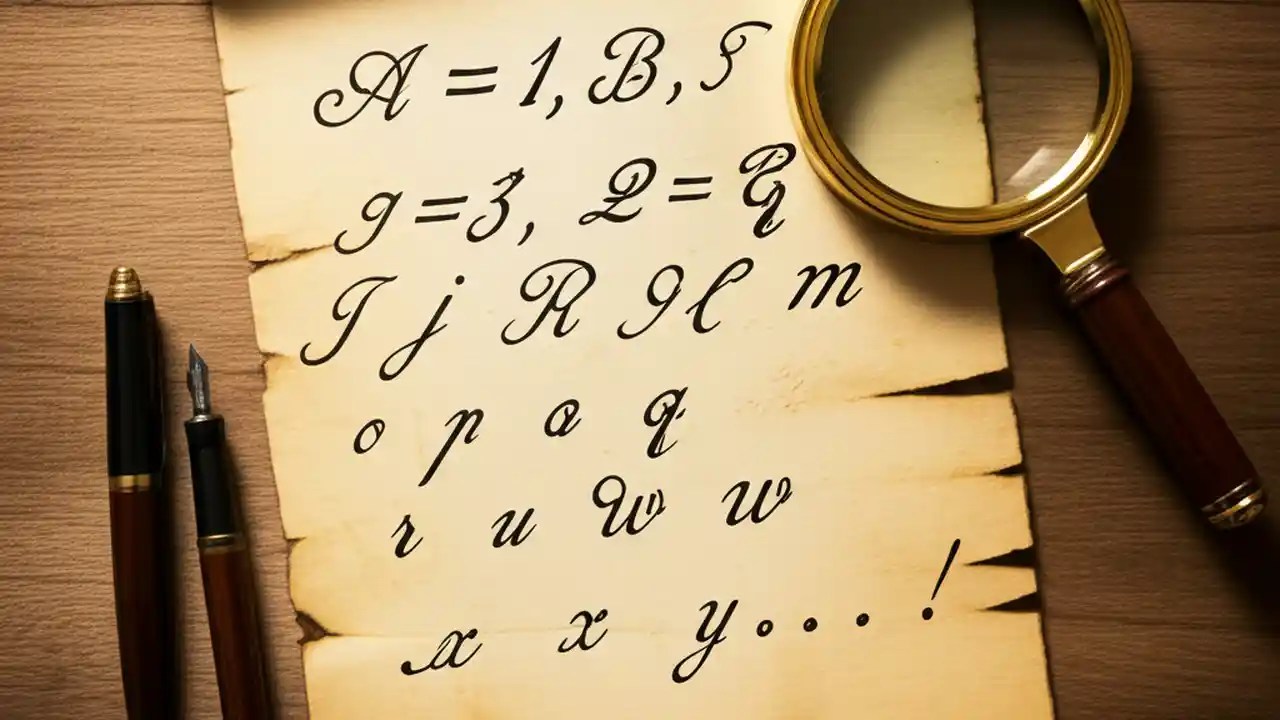 A = 1, B,
g = 3, Q =
J j R m
o p a q
r u W w
x x y... !